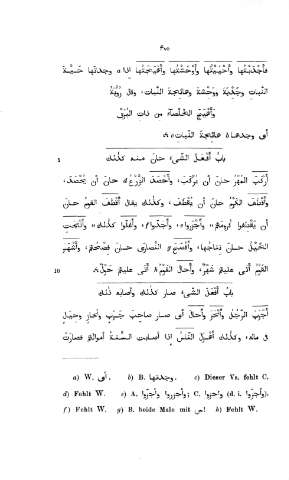 ٣٧٥
فأجدبتُها وأحييتُها وأوحشتُها وأهيجتُها اذا a وجدتها حيّة
النبات وجَدْبة ووَحْشة وهائجة النبات، وقال رُؤْبَة
وأَهْيَجَ الخَلْصَاءَ من ذات البُرَقْ
أى وجدها هائجة النبات
5 باب أفعل الشىء حان منه كذلك
أَرْكَبَ المُهْرُ حان أن يُرْكَب، وأَحْصَدَ الزَّرْعُ حان أن يُحْصَد،
وأَقْطَفَ الكَرْمُ حان أن يُقْطَف، وكذلك يقال أَقْطَفَ القوم حان
أن يقطفوا كرومهم، وأَجَزُّوا، وأَجَدُّوا وأَغَلُّوا كذلك، وأَنْتَجَت
الخَيْلُ حان نتاجها، وأَفْصَحَ النصارى حان فصحهم، وأَشْهَرَ
10 القومُ أتى عليهم شَهْرٌ، وأَحالَ القومُ أتى عليهم حَوْلٌ
باب أفعل الشىء صار كذلك وأصابه ذلك
أَجْرَبَ الرَّجُلُ وأَنْحَزَ وأَحالَ أى صار صاحب جَرَبٍ ونُحازٍ وحِيالٍ
فى ماله، وكذلك أَهْزَلَ النّاسُ اذا أصابت السنة أموالهم فصارت
a) W. أى. b) B. وجدتها. c) Dieser Vs. fehlt C.
d) Fehlt W. e) A. وأجزروا وأجزّوا; C. وأجزوا (d. i. وأجزّوا).
f) Fehlt W. g) B. beide Male mit س! h) Fehlt W.